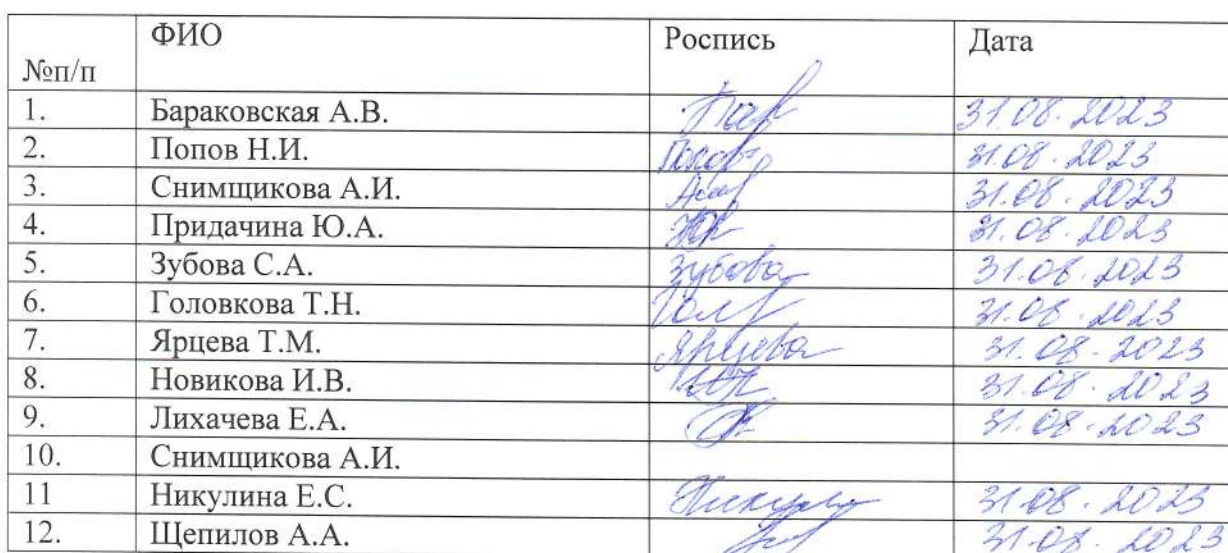 №п/п ФИО Роспись Дата
1. Бараковская А.В. 31.08.2023
2. Попов Н.И. Попов 31.08.2023
3. Снимщикова А.И. 31.08.2023
4. Придачина Ю.А. 31.08.2023
5. Зубова С.А. Зубова 31.08.2023
6. Головкова Т.Н. 31.08.2023
7. Ярцева Т.М. Ярцева 31.08.2023
8. Новикова И.В. 31.08.2023
9. Лихачева Е.А. 31.08.2023
10. Снимщикова А.И.
11 Никулина Е.С. 31.08.2023
12. Щепилов А.А. 31.08.2023